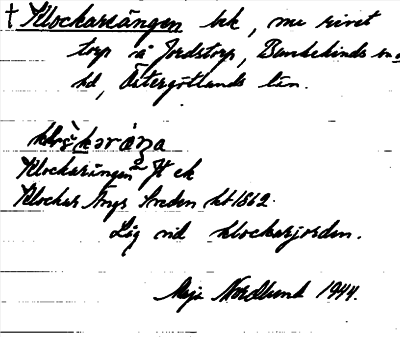 † Klockarsängen bk, nu rivet
torp på Jordstorp, Bankekinds sn o
hd, Östergötlands län.
Klockarängen Jt ek
Klockar Ängs Sveden hfl 1862.
Låg vid klockarjorden.
Maja Nordlund 1944.